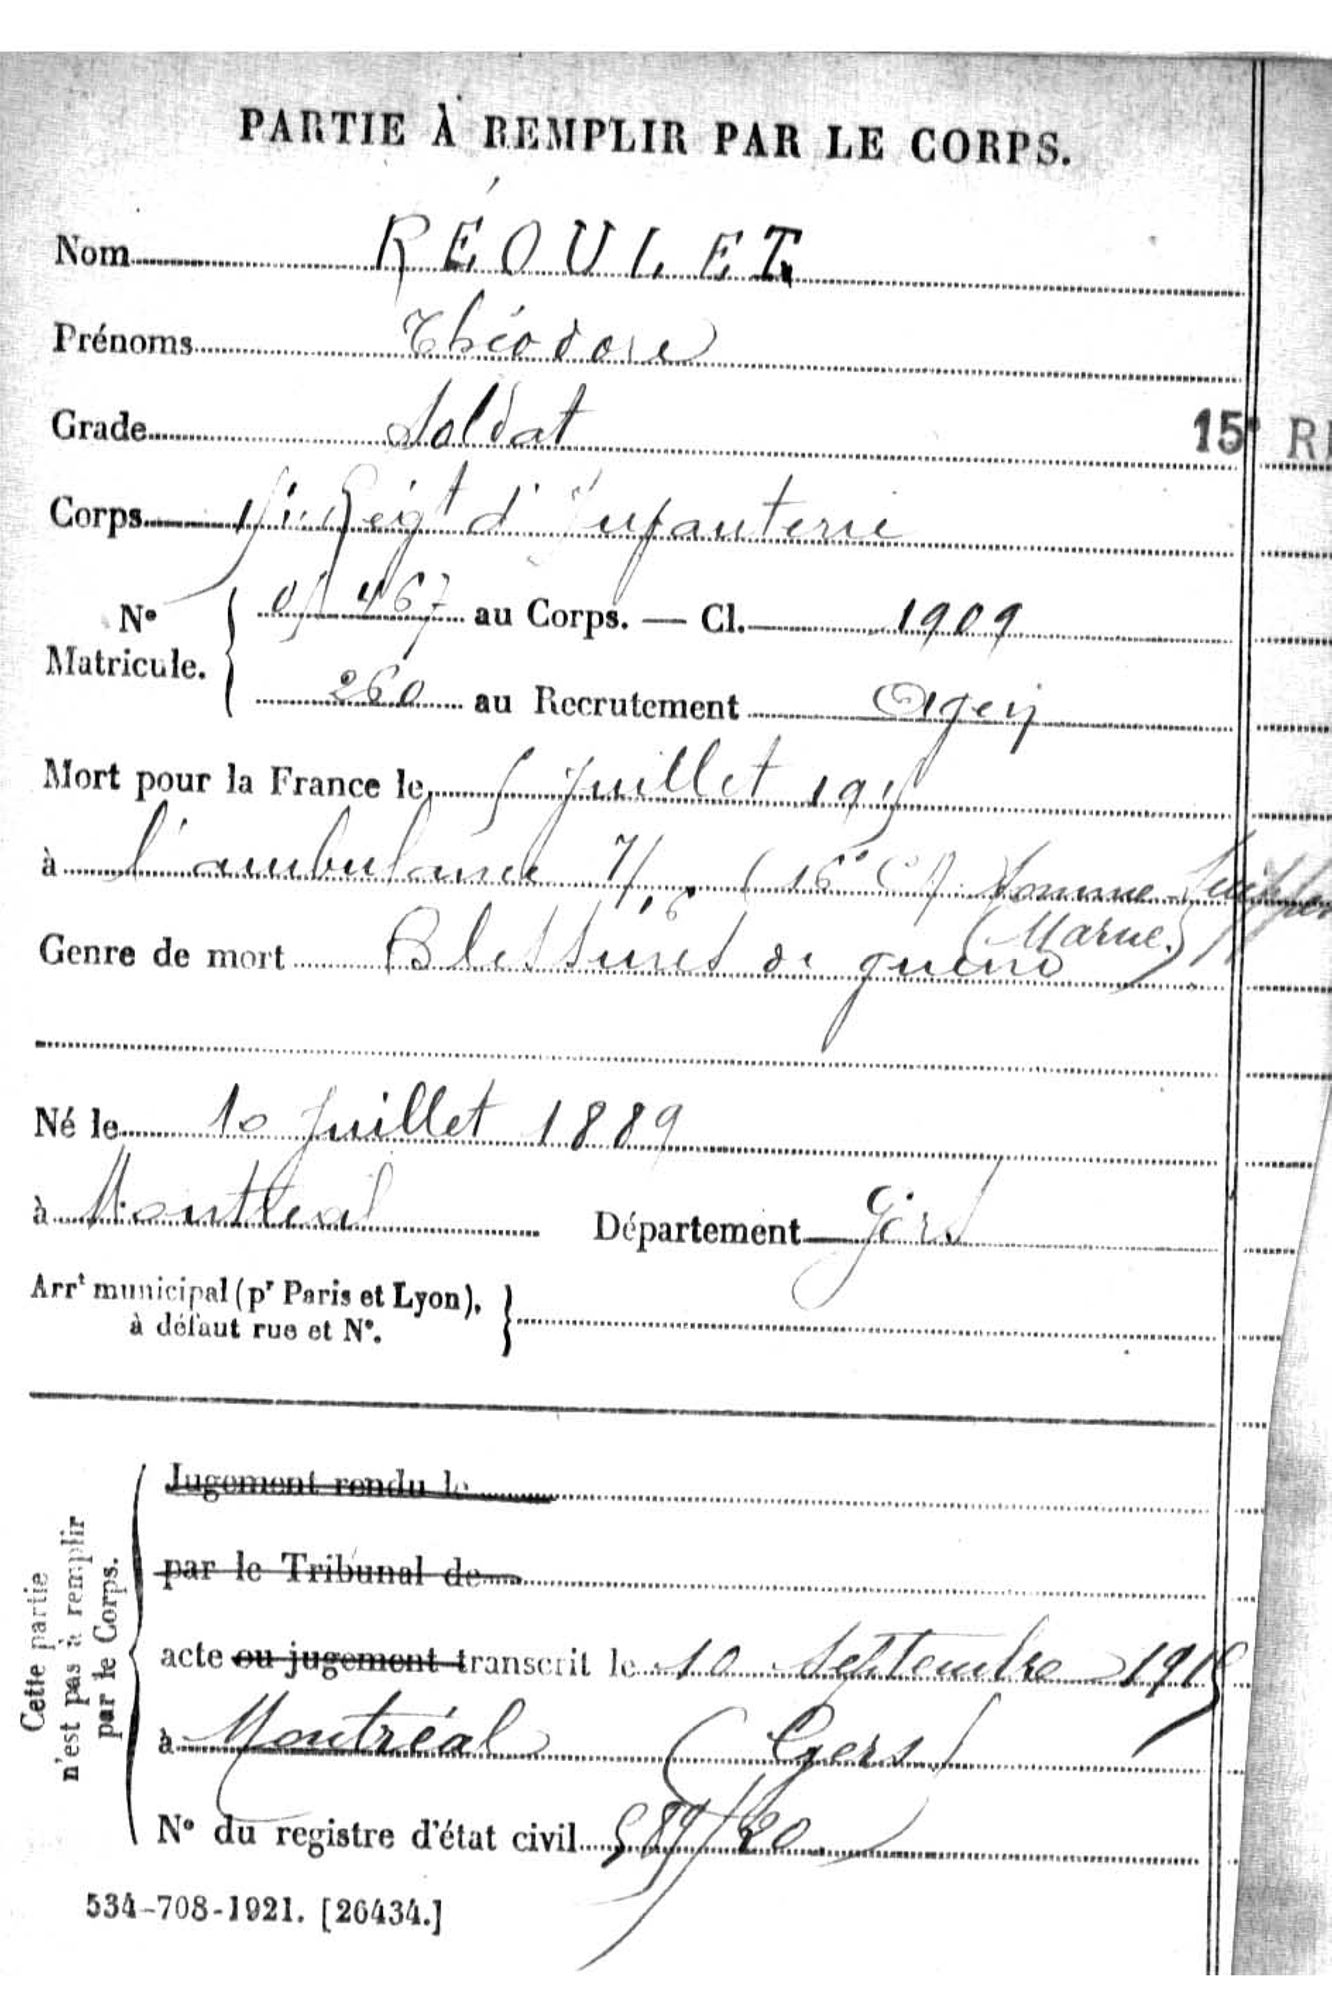 PARTIE À REMPLIR PAR LE CORPS.
Nom RÉOULET
Prénoms Théodore
Grade Soldat
15e R
Corps 15e Régt d'Infanterie
No Matricule. 467 au Corps. — Cl. 1909
260 au Recrutement Agen
Mort pour la France le 5 Juillet 1915
à l'ambulance 7/16 (16e CA) Somme-Suippe
(Marne)
Genre de mort Blessures de guerre
Né le 10 Juillet 1889
à Montréal Département Gers
Arrt municipal (pr Paris et Lyon),
à défaut rue et No.
Cette partie
n'est pas à remplir
par le Corps.
Jugement rendu le
par le Tribunal de
acte ou jugement transcrit le 10 Septembre 1915
à Montréal (Gers)
No du registre d'état civil 589/20
534-708-1921. [26434.]